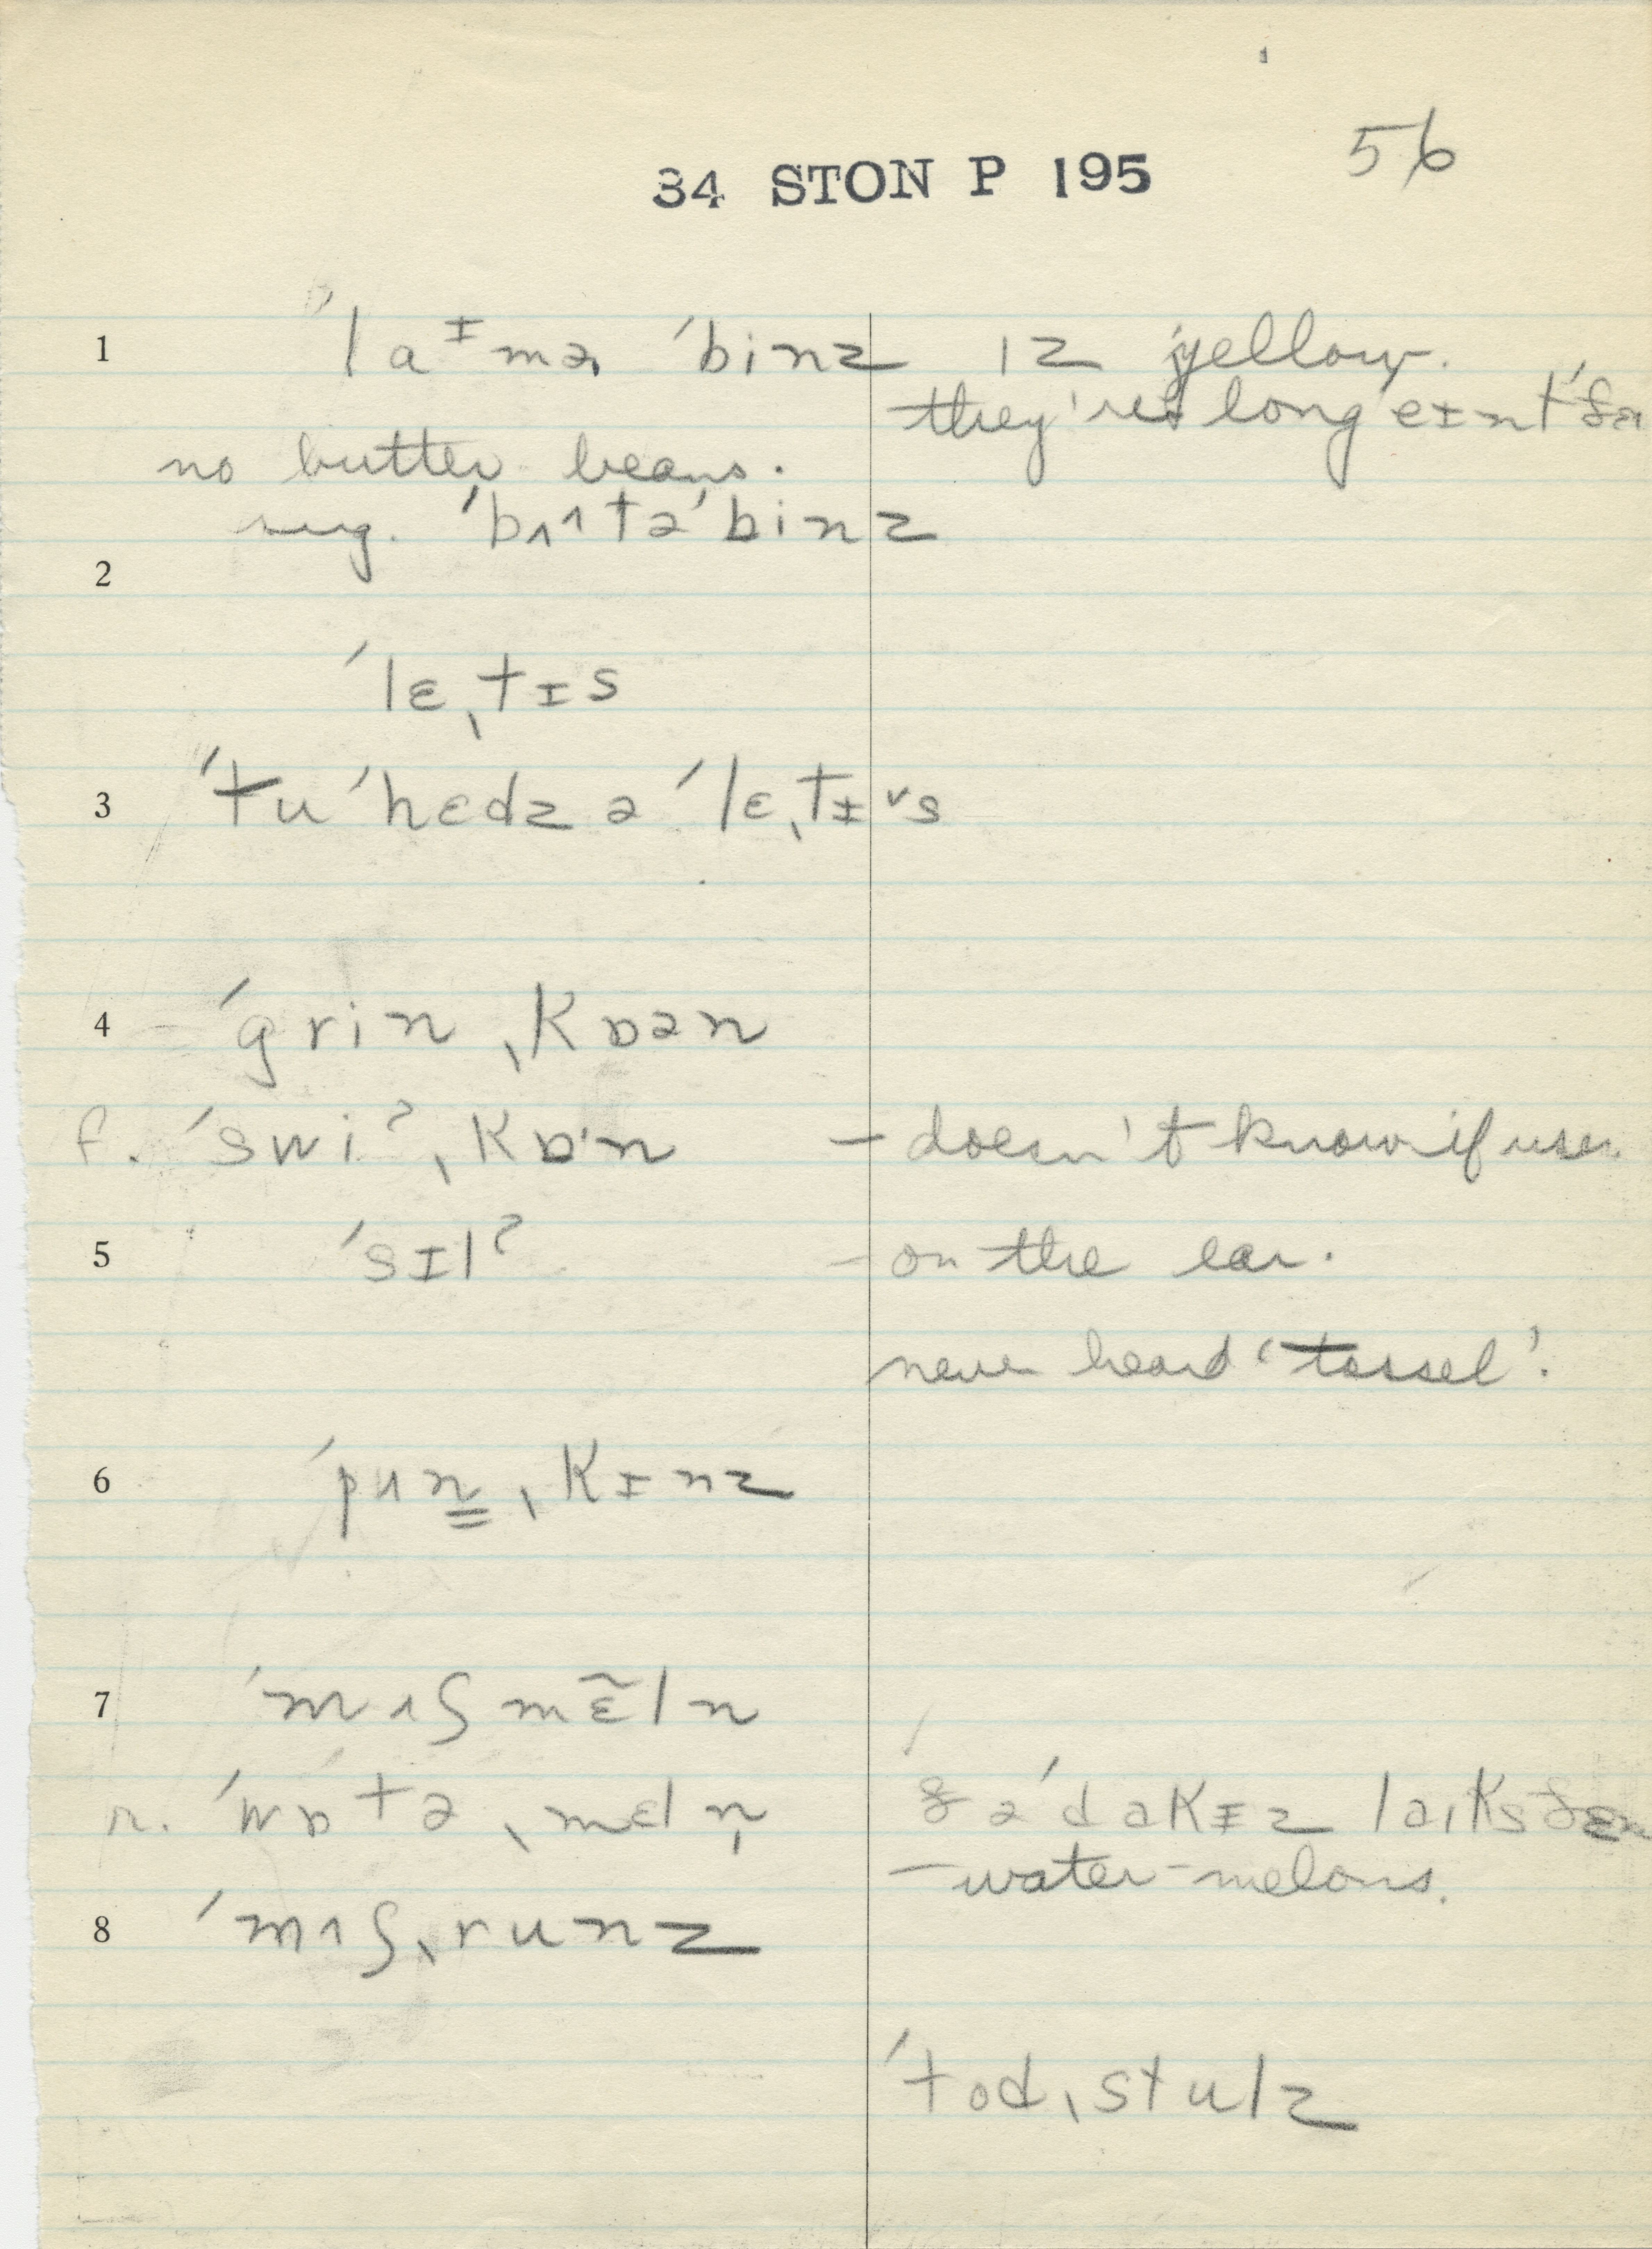 56
34 STON P 195
1 ˈlaᶦmə ˈbinz ɪz yellow.
they're long
no butter beans.
sug. ˈbʌ^tə ˈbinz
2
ˈlɛˌtɪs
3 ˈtu ˈhɛdz ə ˈlɛˌtɪ˅s
4 ˈgrinˌkɒən
f. ˈswiˀˌkɒ·n – doesn't know if
5 ˈsɪlˀ – on the ear.
never heard 'tassel'.
6 ˈpʌn̳ˌkɪnz
7 ˈmʌʃmɛ̃ln
r. ˈwɒtəˌmɛln̩ ðə ˈdakɪz laɪks
– water-melons.
8 ˈmʌʃˌrunz
ˈtodˌstulz